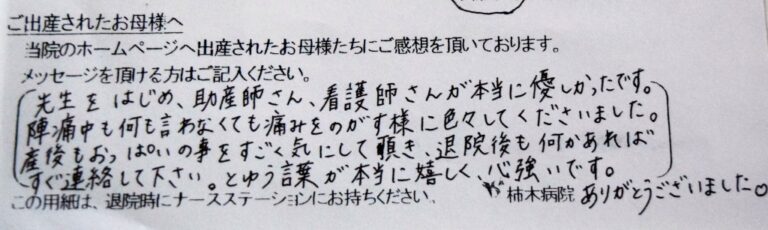 ご出産されたお母様へ
当院のホームページへ出産されたお母様たちにご感想を頂いております。
メッセージを頂ける方はご記入ください。
先生をはじめ、助産師さん、看護師さんが本当に優しかったです。
陣痛中も何も言わなくても痛みをのがす様に色々してくださいました。
産後もおっぱいの事をすごく気にして頂き、退院後も何かあれば
すぐ連絡して下さい。とゆう言葉が本当に嬉しく、心強いです。
ありがとうございました。
この用紙は、退院時にナースステーションにお持ちください。
柿木病院